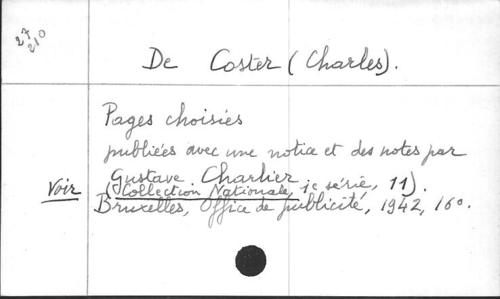 27
210
De Coster (Charles).
Pages choisies
publiées avec une notice et des notes par
Gustave Charlier
Voir (Collection Nationale, 1e série, 11).
Bruxelles, Office de publicité, 1942, 16o.